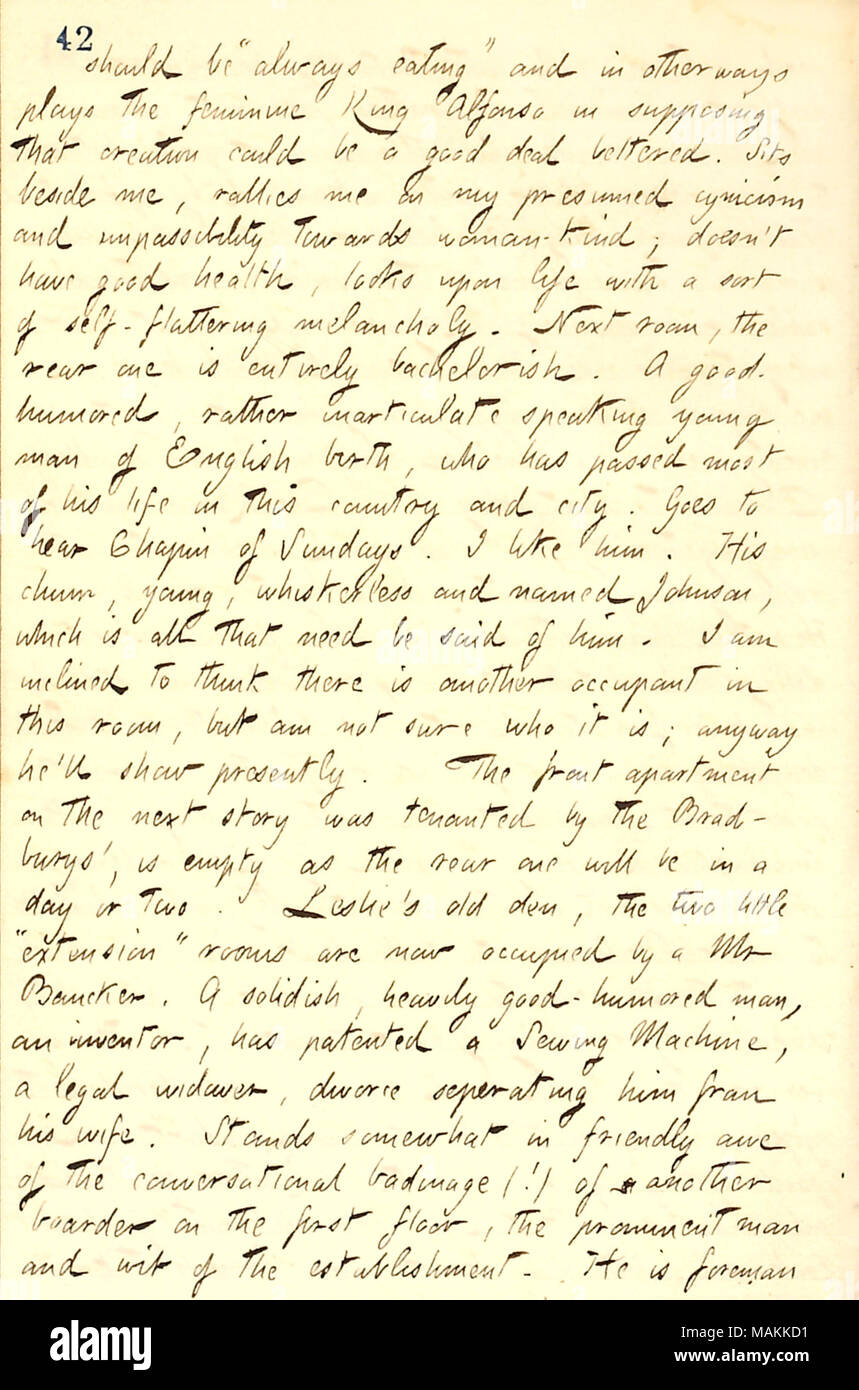 42
should be "always eating" and in other ways
plays the feminine King Alfonso in supposing
that creation could be a good deal bettered. Sits
beside me, rallies me on my presumed cynicism
and impassibility towards woman-kind; doesn't
have good health, looks upon life with a sort
of self-flattering melancholy. Next room, the
rear one is entirely bachelorish. A good-
humored, rather inarticulate speaking young
man of English birth, who has passed most
of his life in this country and city. Goes to
hear Chapin of Sundays. I like him. His
chum, young, whiskerless and named Johnson,
which is all that need be said of him. I am
inclined to think there is another occupant in
this room, but am not sure who it is; anyway
he'll show presently. The front apartment
on the next story was tenanted by the Brad-
burys', is empty as the rear one will be in a
day or two. Leslie's old den, the two little
"extension" rooms are now occupied by a Mr
Bancker. A solidish, heavily good-humored man,
an inventor, has patented a Sewing Machine,
a legal widower, divorce seperating him from
his wife. Stands somewhat in friendly awe
of the conversational badinage (!) of another
boarder on the first floor, the prominent man
and wit of the establishment. He is foreman
alamy
Image ID: MAKKD1
www.alamy.com